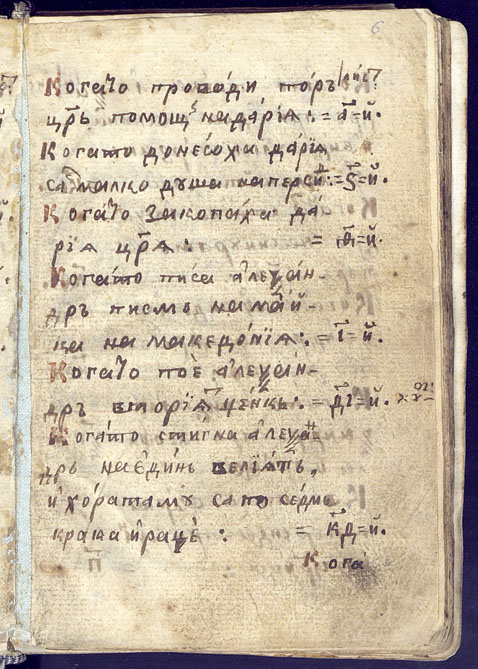 6
Когато проводи поръ листъ
цр҃ь помощъ на да́рїѧ :· = а҃ = й·
Когато донесоха да́рїѧ
са малко душа на персїй :· = ѕ҃ = й·
Когато закопаха да-
рїѧ цр҃ѧ :· = ѳ҃ = й·
Когато писа алеѯан-
дръ писмь на май-
ка на македо́нїѧ :· = і҃ = й·
Когато пое алеѯан-
дръ вторїѧ :· = д҃і = й·
Когато стигна алеѯан-
дрь на єдинь велїѧтъ,
и хо́ратаму са по седмь
крака и раце :· = к҃д = й·
Кога